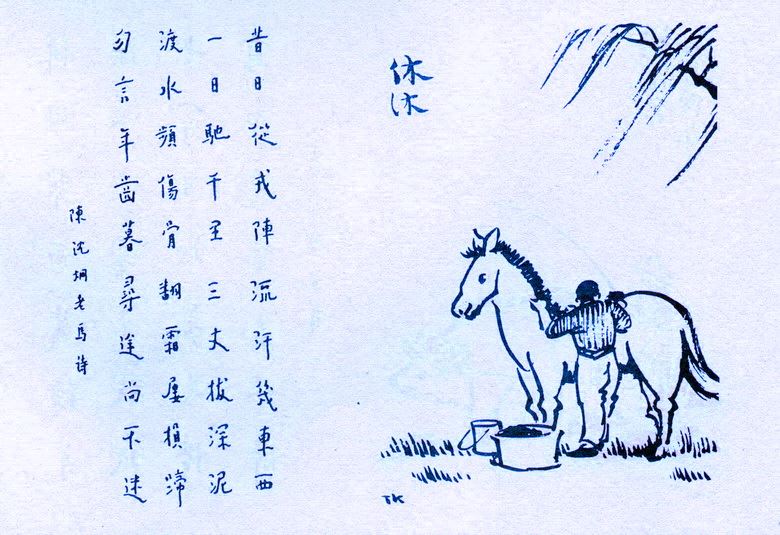 休沐
昔日從戎陣流汗幾東西
一日馳千里三丈拔深泥
渡水頻傷骨翻霜屢損蹄
勿言年齒暮尋途尚不迷
陳沈炯老馬诗
TK